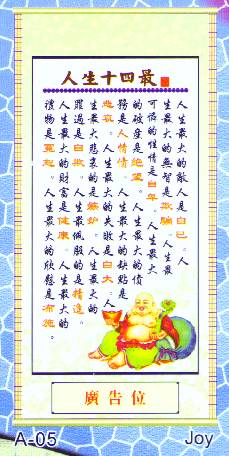 人生十四最
人生最大的敵人是自己。人
生最大的無智是欺騙。人生最
可憐的性情是自卑。人生最大
的破產是絕望。人生最大的債
務是人情債。人生最大的缺點是
人生最大的失敗是自大。人
生最大悲哀的是嫉妒。人生最大的
罪過是自欺。人生最佩服的是精進。
人生最大的財富是健康。人生最大的
禮物是寬恕。人生最大的欣慰是布施。
廣告位
A-05
Joy